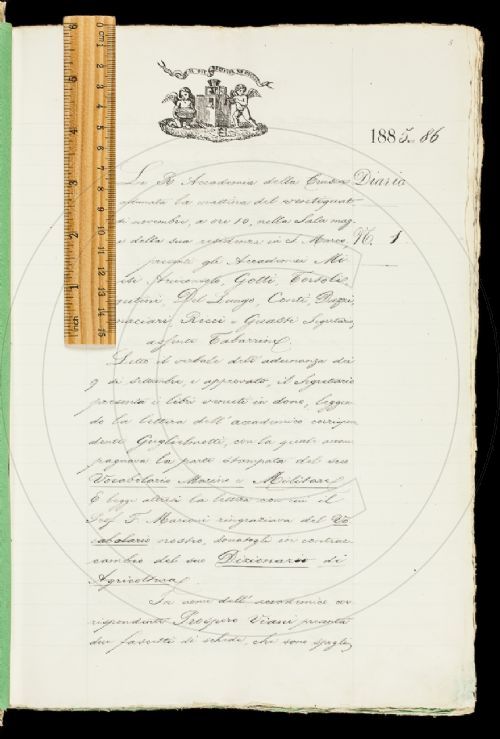 3
1885-86
La R. Accademia della Crusca
Diario
adunata la mattina del ventiquat
di novembre, a ore 10, nella Sala mag
e della sua residenza in S. Marco,
N. 1
presenti gli Accademici Mi
Conti, Gotti, Tortoli
Del Lungo, Conti, Dazzi,
Ricci e Gualdi Segretario,
assente Tabarrini.
Letto il verbale dell'adunanza dei
9 di settembre, e approvato, il Segretario
presenta i libri venuti in dono, leggen
do la lettera dell'accademico corrispon
dente Guglielmotti, con la quale accom
pagnava la parte stampata del suo
Vocabolario Marino e Militare
E legge altresì la lettera con cui il
Prof. F. Mariani ringraziava del Vo
cabolario nostro, donatogli in contrac
cambio del suo Dizionario di
Agricoltura.
In nome dell'accademico cor
rispondente Prospero Viani presenta
due fascetti di schede, che sono spogli
0 cm 1 2 3 4 5 6 7 8 9 10 11 12 13 14 15
inch 1 2 3 4 5 6